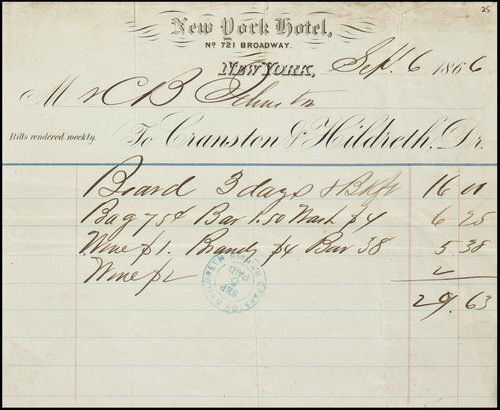 25
New York Hotel,
No 721 BROADWAY.
NEW YORK, Sept. 6 1866
Mr C B Johnston
Bills rendered weekly. To Cranston & Hildreth, Dr.
Board 3 days & Bkft 16 00
Bag 75¢ Bar 1.50 Wash $4 6 25
Wine $1. Brandy $4 Bar 38 5 38
Wine $2 2
29.63
HILDRETH
SEP
PAID